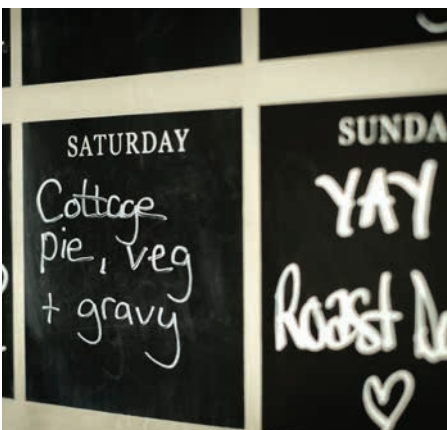 SATURDAY
Cottage
pie, veg
+ gravy
SUNDA
YAY
Roast